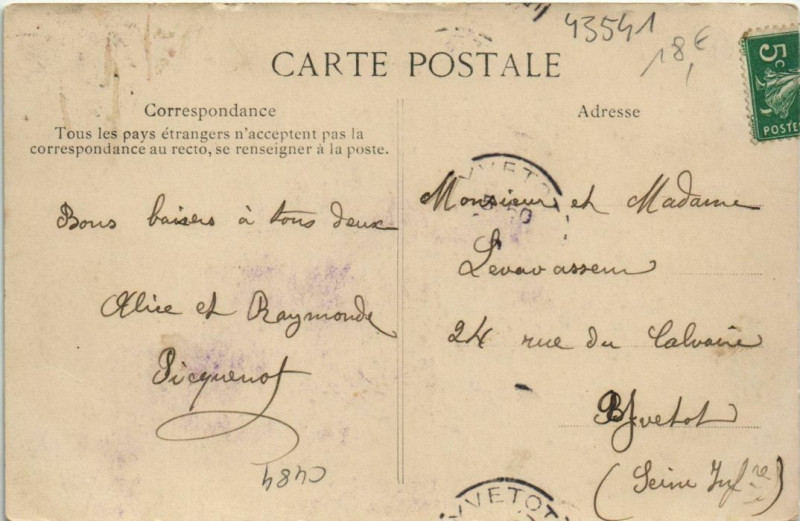 43541
18,€
CARTE POSTALE
5c
POSTES
Correspondance
Tous les pays étrangers n'acceptent pas la
correspondance au recto, se renseigner à la poste.
Bons baisers à tous deux
Alice et Raymonde
Picquenot
C484
Adresse
YVETOT
Monsieur et Madame
Levavasseur
24 rue du Calvaire
Yvetot
(Seine Infre)
YVETOT